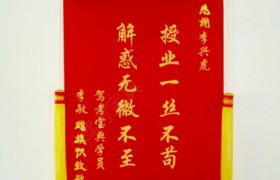 感谢李兴虎
授业一丝不苟
解惑无微不至
驾考宝典学员
李敏